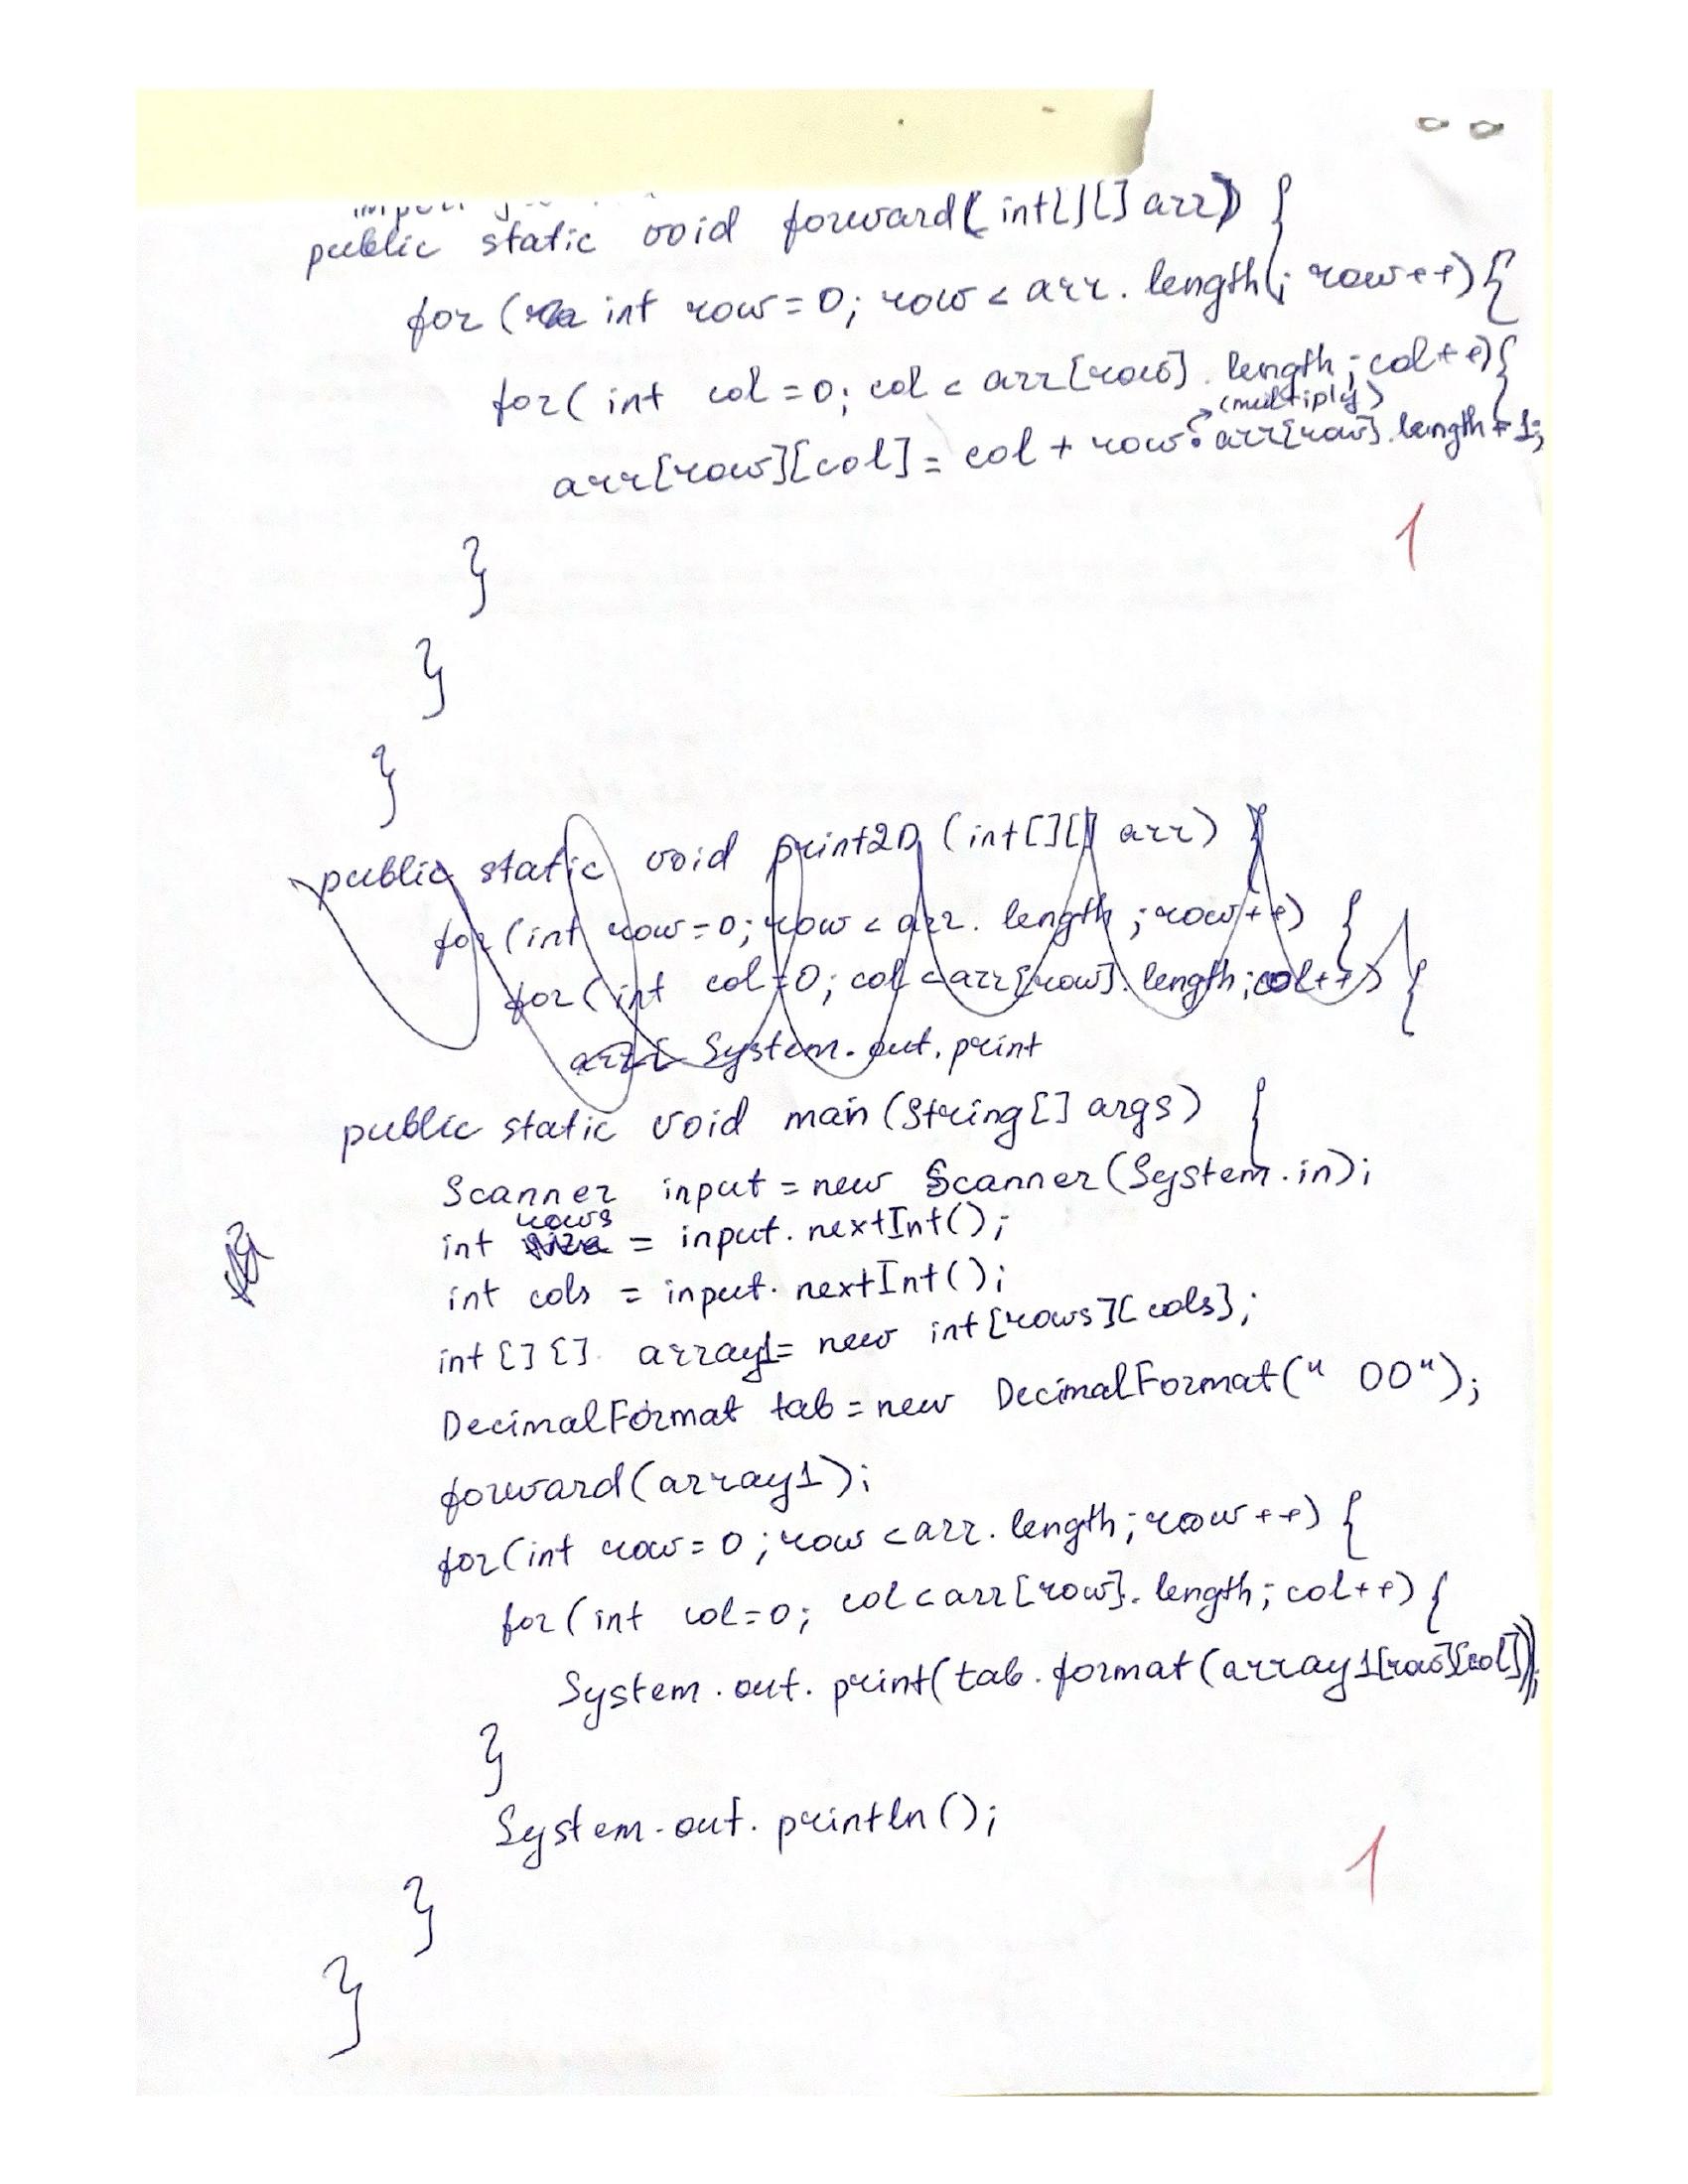 public static void forward(int[][] arr) {
for (int row=0; row < arr.length; row++){
for( int col=0; col < arr[row].length; col++){
(multiply)
arr[row][col]= col + row • arr[row].length+1;
1
}
}
}
public static void print2D (int[][] arr) {
for(int row=0; row < arr.length; row++) {
for(int col=0; col < arr[row].length; col++) {
arr[ System.out.print
public static void main (String[] args) {
Scanner input = new Scanner(System.in);
int rows = input.nextInt();
int cols = input.nextInt();
int [] []. array1= new int[rows][cols];
DecimalFormat tab = new DecimalFormat(" 00");
forward(array1);
for(int row=0; row < arr.length; row++) {
for(int col=0; col < arr[row].length; col++) {
System.out.print(tab.format(array1[row][col]));
}
System.out.println();
1
}
}